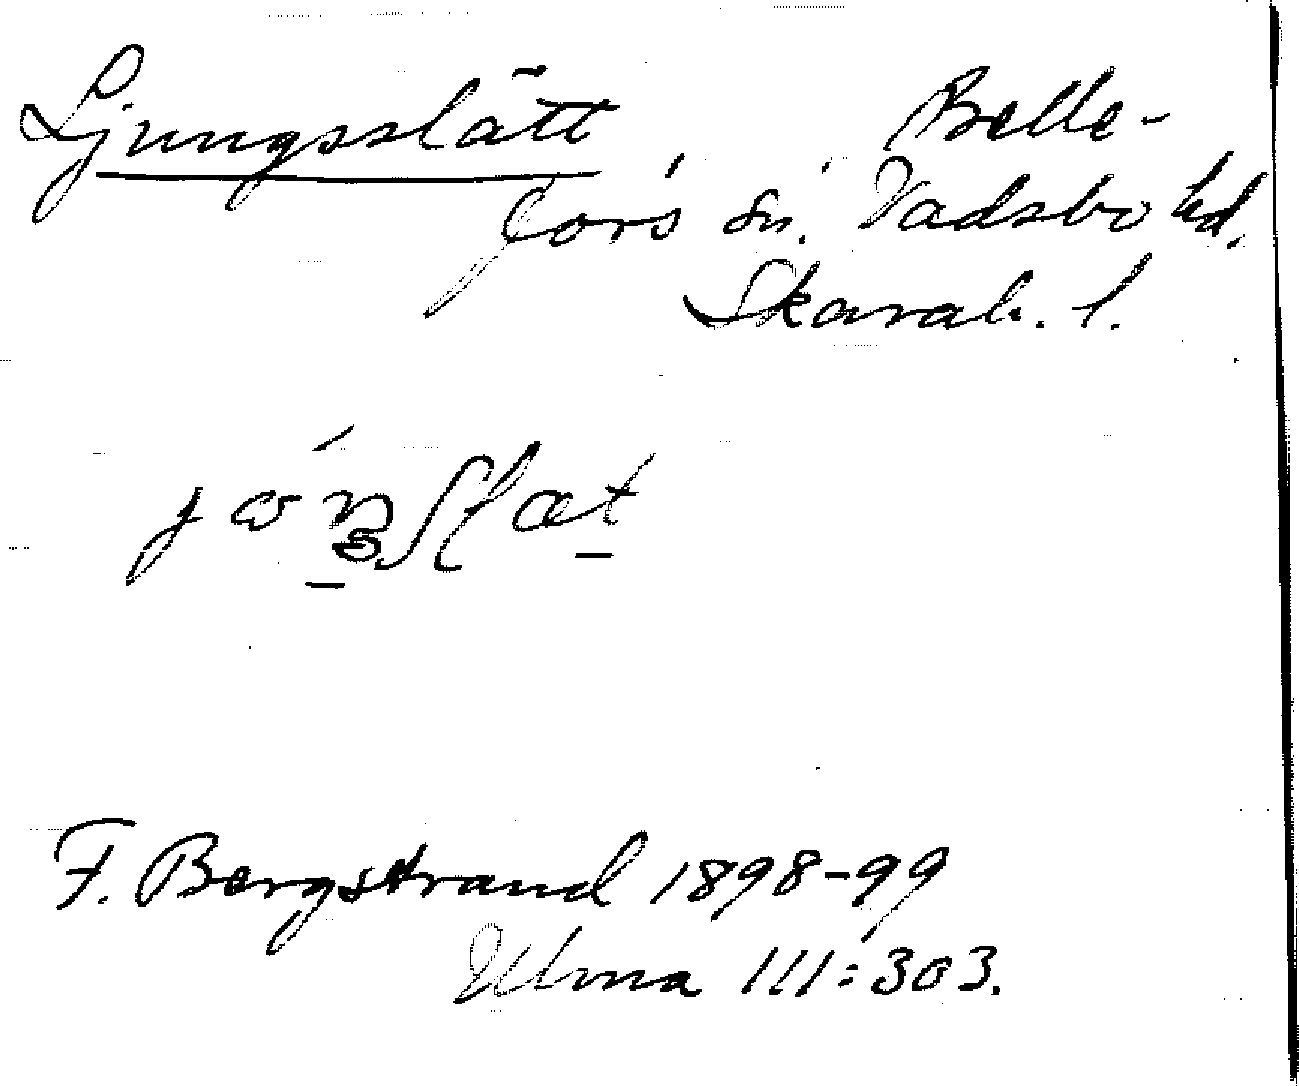 Ljungsslätt Belle-
fors sn. Vadsbo hd.
Skarab. l.
F. Bergstrand 1898-99
Ulma 111:303.